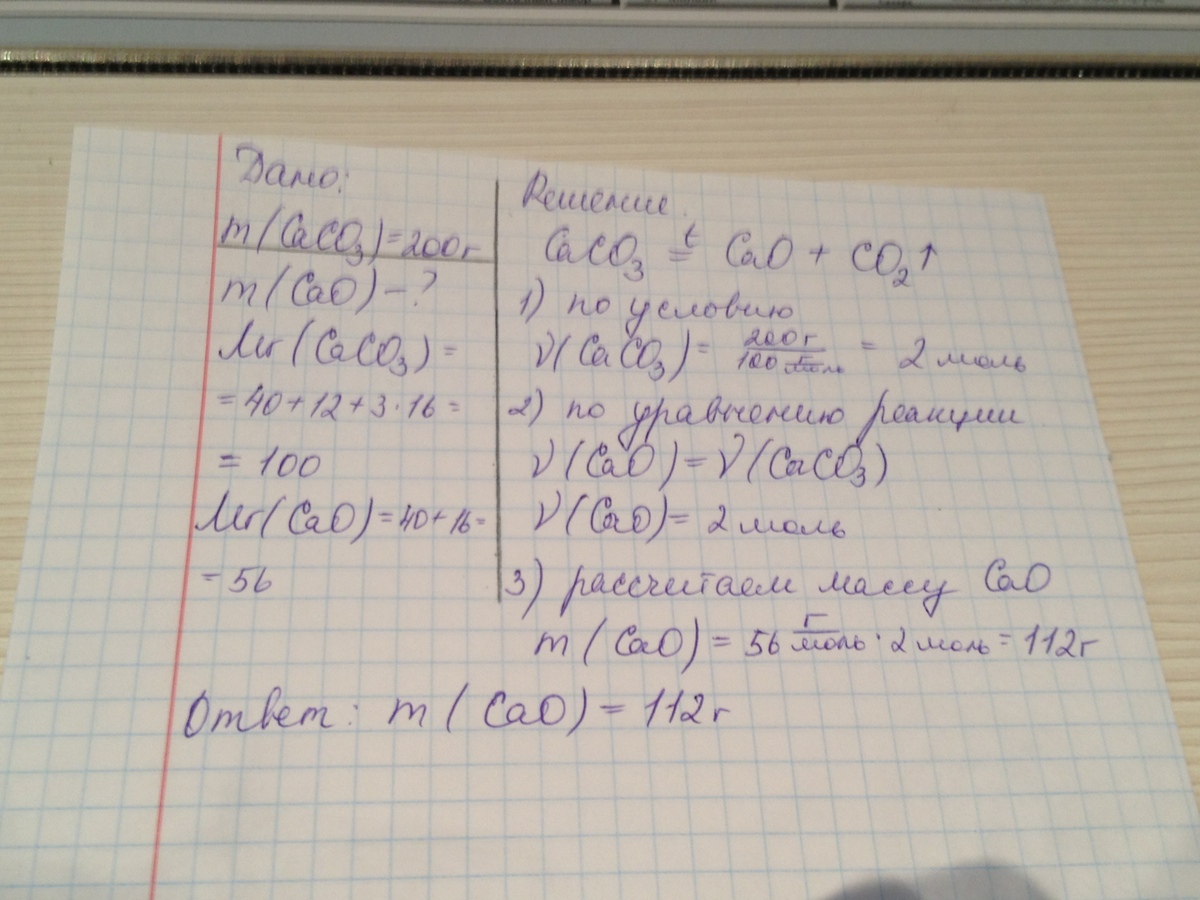 Дано:
m(CaCO₃)=200г
m(CaO)-?
Mr(CaCO₃)=
=40+12+3·16=
=100
Mr(CaO)=40+16=
=56
Решение.
CaCO₃ t= CaO + CO₂↑
1) по условию
ν(CaCO₃)= 200г/100 г/моль = 2 моль
2) по уравнению реакции
ν(CaO)=ν(CaCO₃)
ν(CaO)= 2 моль
3) рассчитаем массу CaO
m(CaO)= 56 г/моль · 2 моль = 112г
Ответ: m(CaO)= 112г